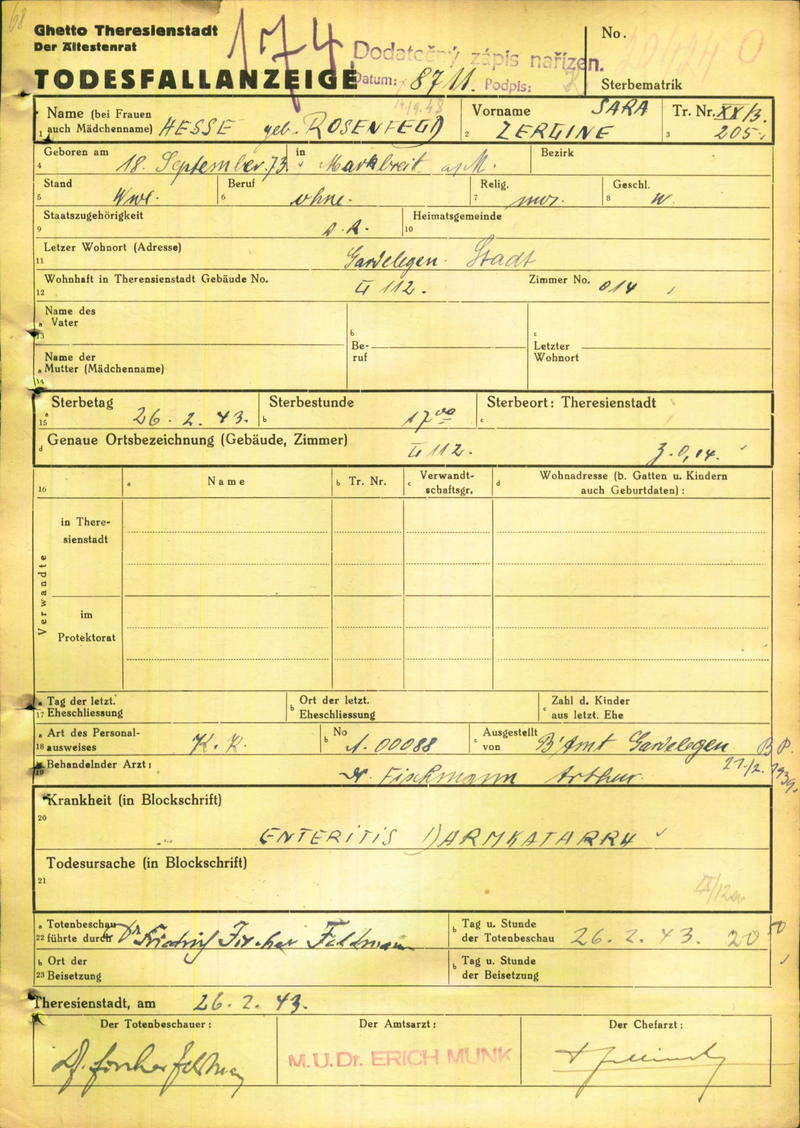 68
Ghetto Theresienstadt
Der Ältestenrat
TODESFALLANZEIGE
174
Dodatečný zápis nařízen.
Datum: 8711. Podpis:
14/9.48
No.
20424
Sterbematrik
Name (bei Frauen
1 auch Mädchenname) HESSE geb. ROSENFELD
Vorname SARA
2 ZERLINE
Tr. Nr. XX/3.
3 205.
Geboren am in Bezirk
4 18. September 73. Marktbreit a/M.
Stand Beruf Relig. Geschl.
5 Wwe. 6 ohne. 7 mos. 8 w.
Staatszugehörigkeit Heimatsgemeinde
9 D.R. 10
Letzer Wohnort (Adresse)
11 Gardelegen Stadt
Wohnhaft in Theresienstadt Gebäude No. Zimmer No. 014
12 112.
Name des
a Vater
13
b
Be-
ruf
c
Letzter
Wohnort
Name der
a Mutter (Mädchenname)
14
a Sterbetag b Sterbestunde c Sterbeort: Theresienstadt
15 26. 2. 43. 17 00
d Genaue Ortsbezeichnung (Gebäude, Zimmer)
112. Z. 0,14.
16 a Name b Tr. Nr. c Verwandt-
schaftsgr. d Wohnadresse (b. Gatten u. Kindern
auch Geburtdaten) :
Verwandte
in There-
sienstadt
im
Protektorat
a Tag der letzt.
17 Eheschliessung
b Ort der letzt.
Eheschliessung
c Zahl d. Kinder
aus letzt. Ehe
a Art des Personal-
18 ausweises K. K.
b No A. 00088
c Ausgestellt
von B'Amt Gardelegen B P.
21./2. 1939.
Behandelnder Arzt :
19 Dr. Fischmann Arthur
Krankheit (in Blockschrift)
20
ENTERITIS DARMKATARRH
Todesursache (in Blockschrift)
21
a Totenbeschau
22 führte durch Dr Friedrich Fischer Feldmann
b Tag u. Stunde
der Totenbeschau 26. 2. 43. 20 00
b Ort der
23 Beisetzung
b Tag u. Stunde
der Beisetzung
Theresienstadt, am 26. 2. 43.
Der Totenbeschauer : Der Amtsarzt : Der Chefarzt :
M.U.Dr. ERICH MUNK